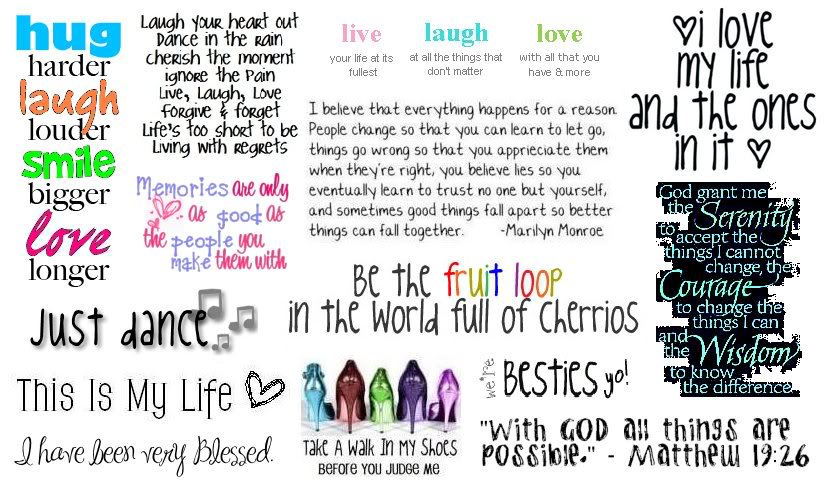 hug
harder
laugh
louder
smile
bigger
love
longer
Laugh your heart out
Dance in the rain
cherish the moment
ignore the Pain
Live, Laugh, Love
forgive & forget
Life's too short to be
Living with regrets
live
your life at its
fullest
laugh
at all the things that
don't matter
love
with all that you
have & more
i love
my life
and the ones
in it
I believe that everything happens for a reason.
People change so that you can learn to let go,
things go wrong so that you apprieciate them
when they're right, you believe lies so you
eventually learn to trust no one but yourself,
and sometimes good things fall apart so better
things can fall together. -Marilyn Monroe
Memories are only
as good as
the people you
make them with
God grant me
the Serenity
to accept the
things I cannot
change, the
Courage
to change the
things I can
and
the Wisdom
to know
the difference.
Be the fruit loop
in the world full of Cherrios
Just dance
This Is My Life
I have been very Blessed.
Take A Walk In My Shoes
Before You Judge Me
we're
Besties yo!
"With GOD all things are
possible." - Matthew 19:26